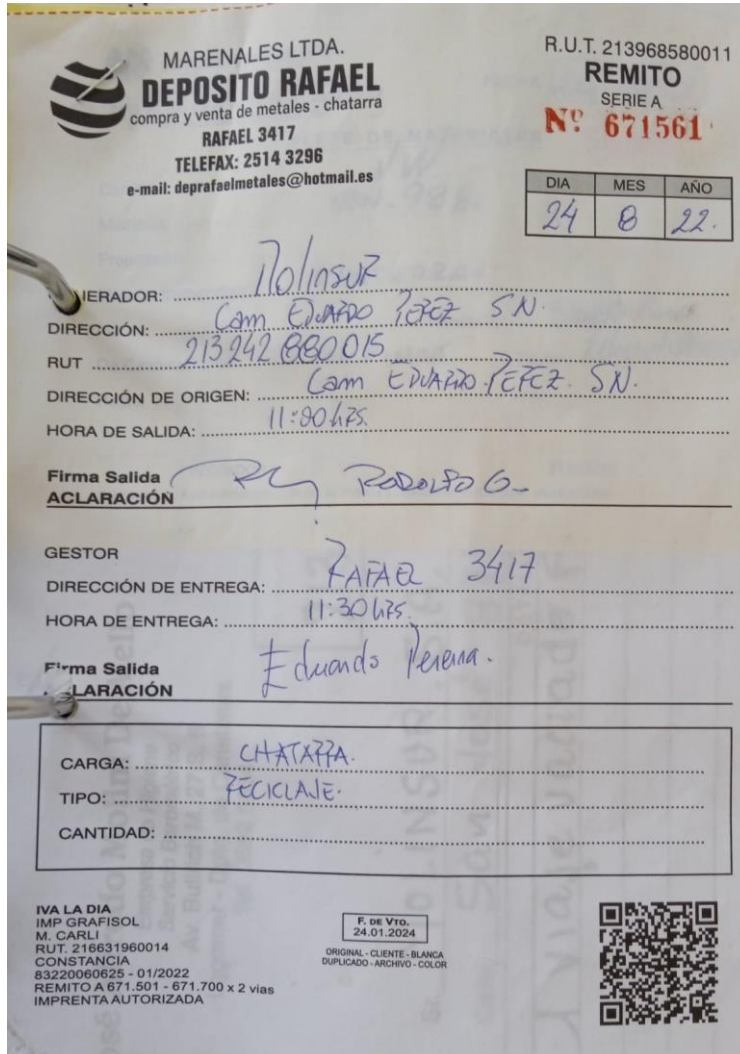 MARENALES LTDA.
DEPOSITO RAFAEL
compra y venta de metales - chatarra
RAFAEL 3417
TELEFAX: 2514 3296
e-mail: deprafaelmetales@hotmail.es
R.U.T. 213968580011
REMITO
SERIE A
Nº 671561
DIA MES AÑO
24 8 22.
IERADOR: MOLINSUR
DIRECCIÓN: Cam EDUARDO PEREZ SN.
RUT 213242880015
DIRECCIÓN DE ORIGEN: Cam EDUARDO PEREZ. SN.
HORA DE SALIDA: 11:00 hrs.
Firma Salida RODOLFO G.
ACLARACIÓN
GESTOR
DIRECCIÓN DE ENTREGA: RAFAEL 3417
HORA DE ENTREGA: 11:30 hrs.
Firma Salida Eduardo Pereira.
LARACIÓN
CARGA: CHATARRA.
TIPO: RECICLAJE.
CANTIDAD:
IVA LA DIA
IMP GRAFISOL
M. CARLI
RUT. 216631960014
CONSTANCIA
83220060625 - 01/2022
REMITO A 671.501 - 671.700 x 2 vias
IMPRENTA AUTORIZADA
F. DE VTO.
24.01.2024
ORIGINAL - CLIENTE - BLANCA
DUPLICADO - ARCHIVO - COLOR